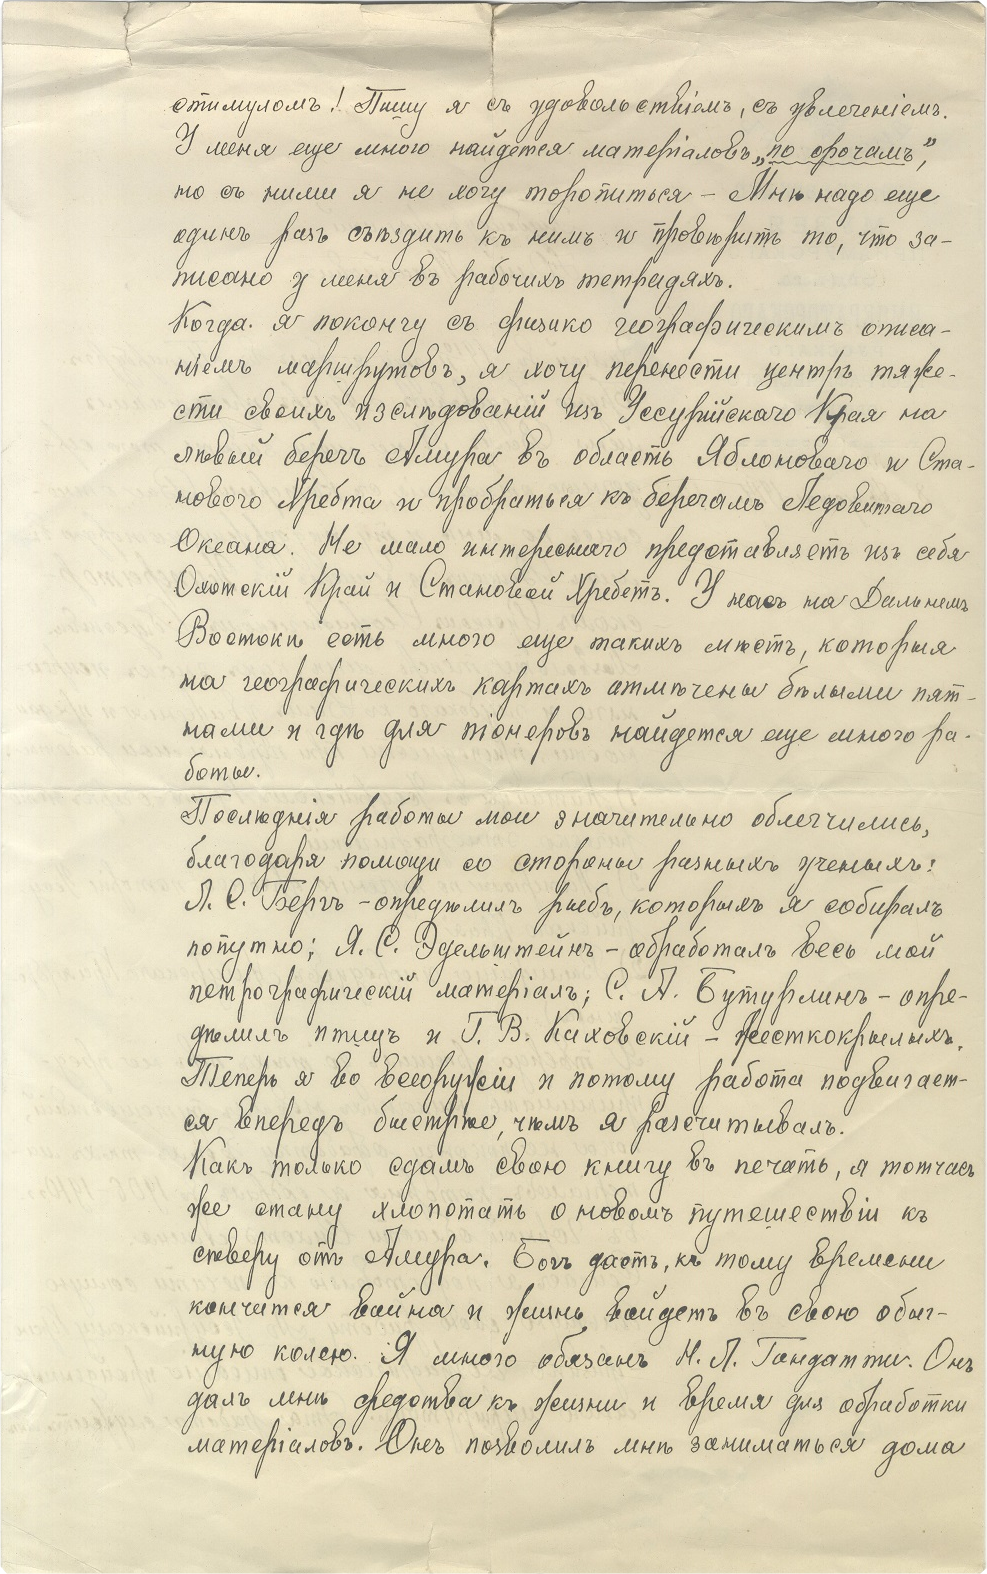 стимуломъ! Пишу я съ удовольствіемъ, съ увлеченіемъ.
У меня еще много найдется матеріаловъ „по орочамъ",
но съ ними я не могу торопиться – Мнѣ надо еще
одинъ разъ съѣздить къ нимъ и провѣрить то, что за-
писано у меня въ рабочихъ тетрадяхъ.
Когда я покончу съ физико географическимъ описа-
ніемъ маршрутовъ, я хочу перенести центръ тяже-
сти своихъ изслѣдованій изъ Уссурійскаго Края на
лѣвый берегъ Амура въ область Яблоноваго и Ста-
нового Хребта и пробраться къ берегамъ Ледовитаго
Океана. Не мало интереснаго представляетъ изъ себя
Охотскій Край и Становой Хребетъ. У насъ на Дальнемъ
Востокѣ есть много еще такихъ мѣстъ, которыя
на географическихъ картахъ отмѣчены бѣлыми пят-
нами и гдѣ для піонеровъ найдется еще много ра-
боты.
Послѣднія работы мои значительно облегчились,
благодаря помощи со стороны разныхъ ученыхъ:
Л. С. Бергъ – опредѣлилъ рыбъ, которыхъ я собиралъ
попутно; Я. С. Эдельштейнъ – обработалъ весь мой
петрографическій матеріалъ; С. А. Бутурлинъ – опре-
дѣлилъ птицъ и Г. В. Каховскій – жесткокрылыхъ.
Теперь я во всеоружіи и потому работа подвигает-
ся впередъ быстрѣе, чѣмъ я разсчитывалъ.
Какъ только сдамъ свою книгу въ печать, я тотчасъ
же стану хлопотать о новомъ путешествіи къ
сѣверу отъ Амура. Богъ дастъ, къ тому времени
кончится война и жизнь войдетъ въ свою обыч-
ную колею. Я много обязанъ Н. Л. Гондатти. Онъ
далъ мнѣ средства къ жизни и время для обработки
матеріаловъ. Онъ позволилъ мнѣ заниматься дома